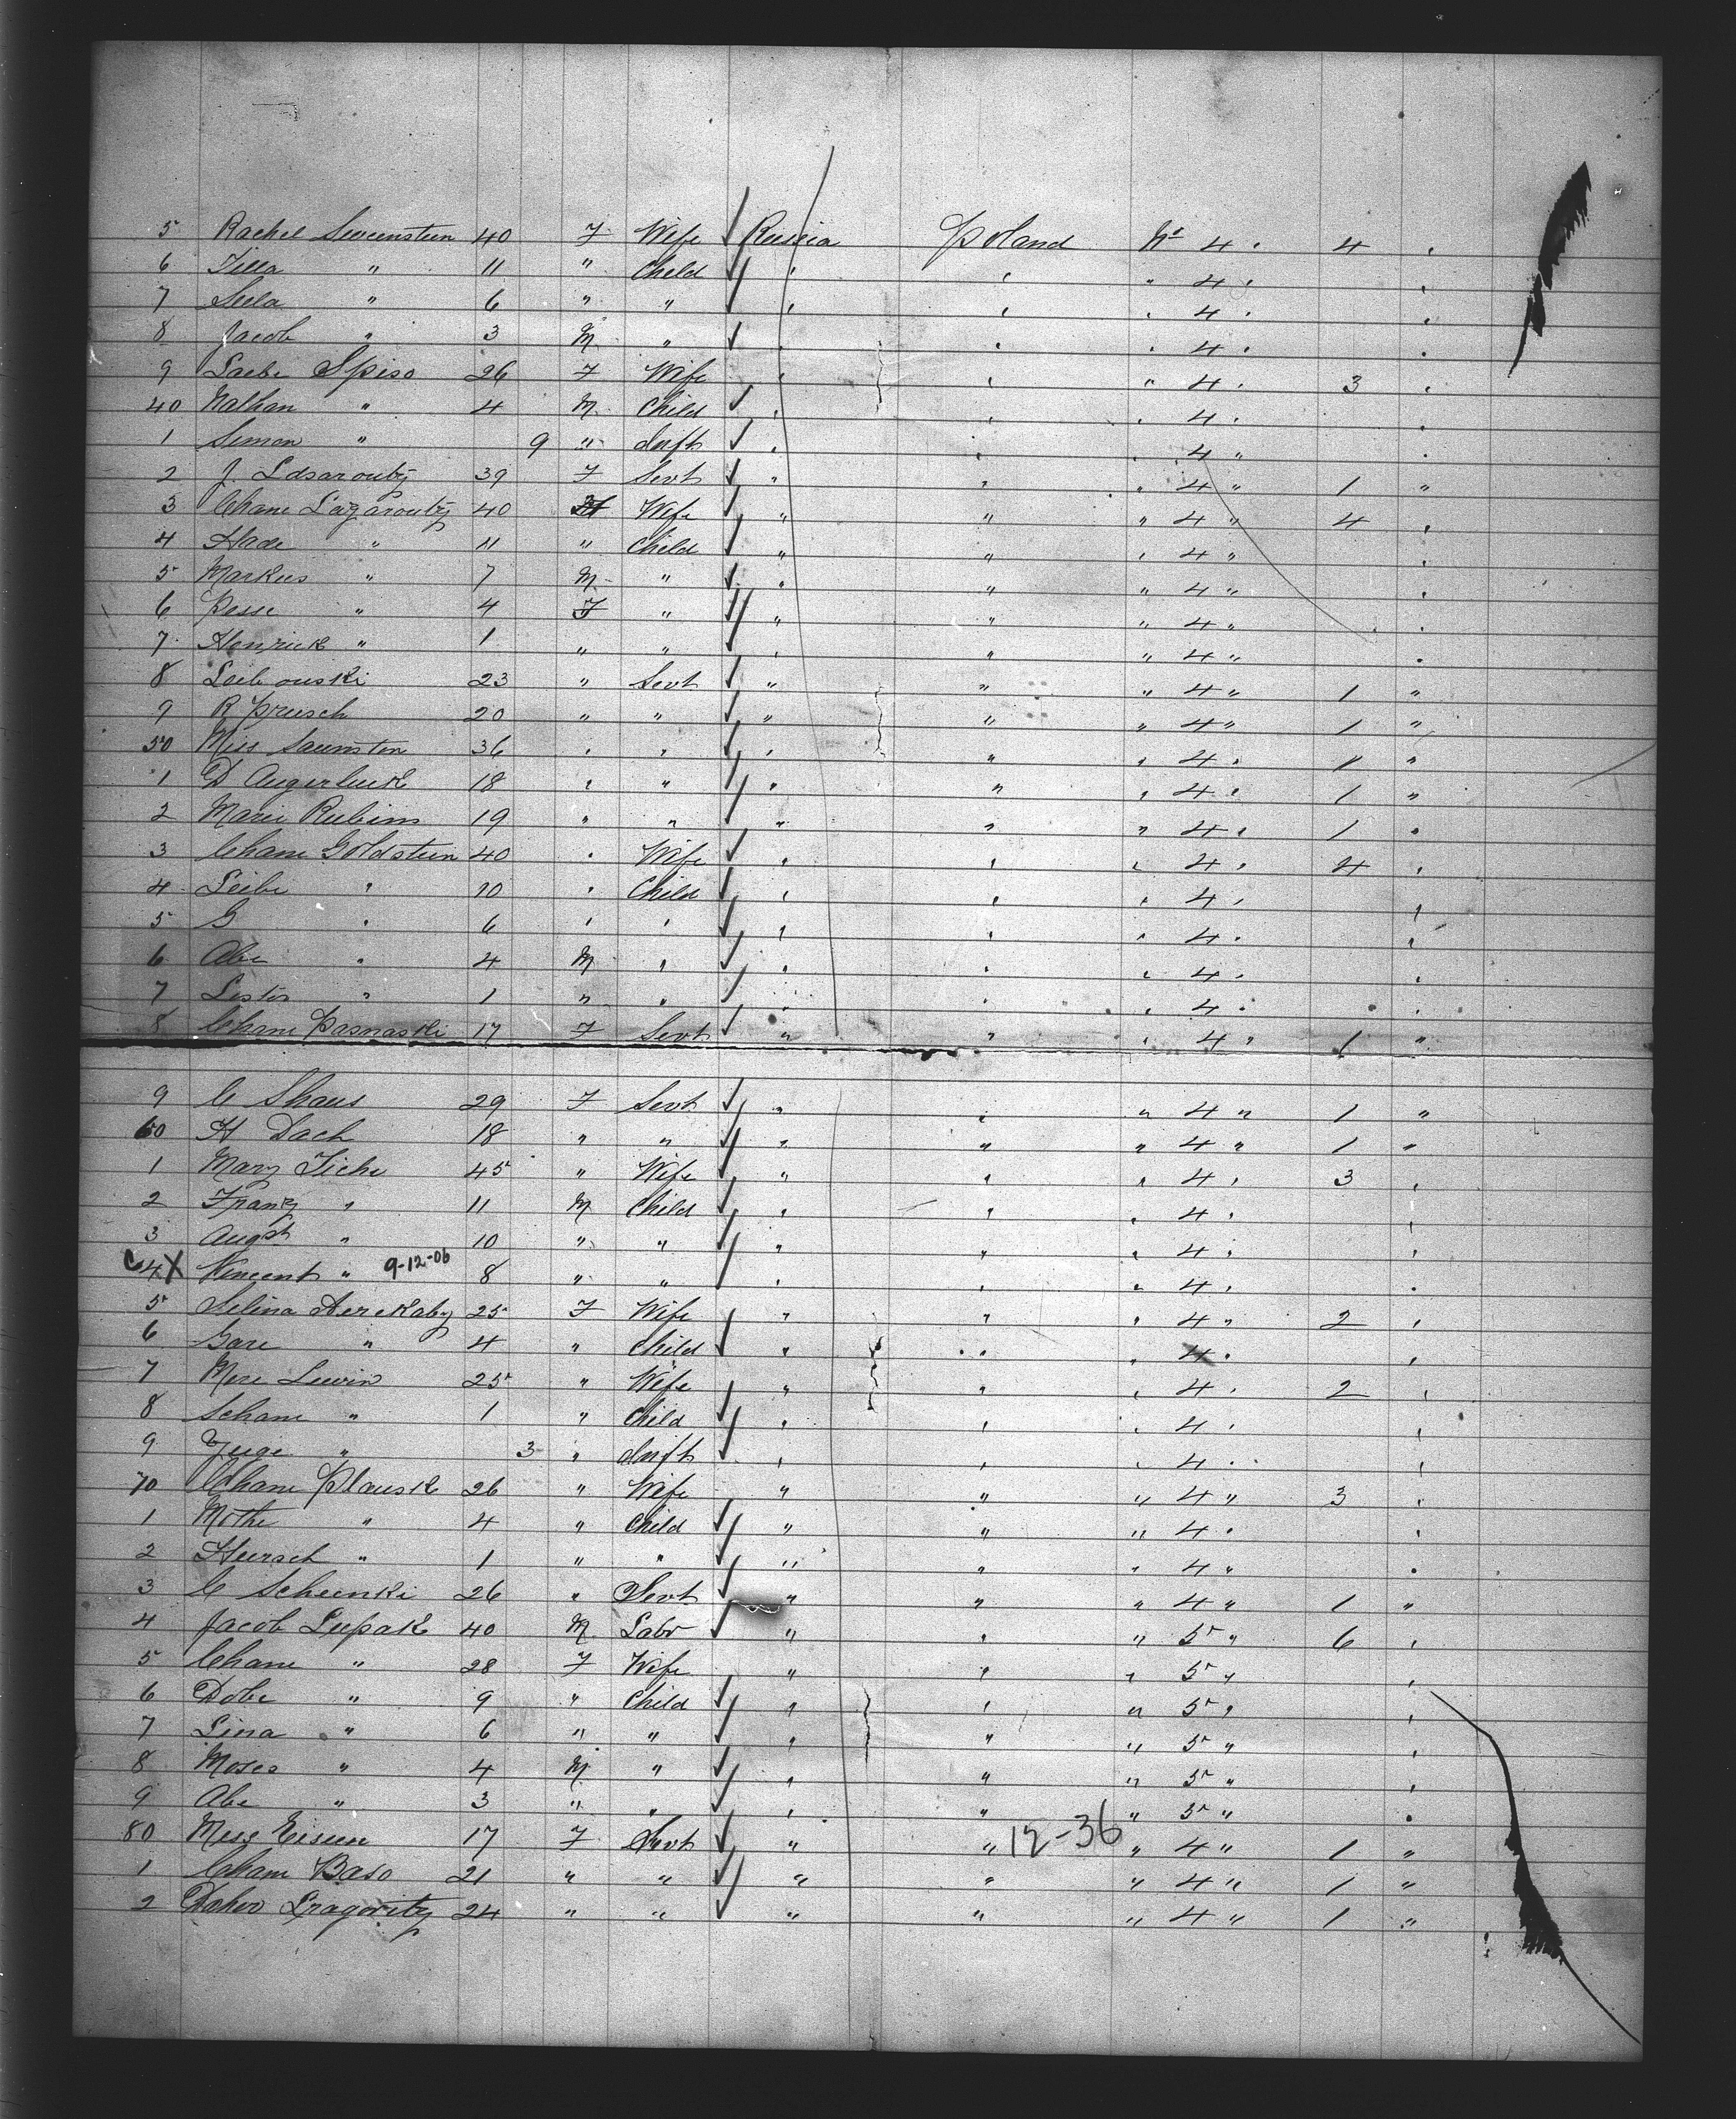 5 Rachel Sevenstein 40 F Wife ✓ Russia Poland No 4 " 4 "
6 Tilla " 11 " Child ✓ " " " 4 " "
7 Seela " 6 " " ✓ " " " 4 " "
8 Jacob " 3 M " ✓ " " " 4 " "
9 Laebe Spiso 26 F Wife " " " 4 " 3 "
40 Nathan " 4 M Child ✓ " " " 4 " "
1 Simon " 9 " Inft ✓ " " " 4 " "
2 J. Lasaroutz 39 F Sevt ✓ " " " 4 " 1 "
3 Chane Lazaroutz 40 Wife ✓ " " " 4 " 4 "
4 Hade " 11 " Child ✓ " " " 4 " "
5 Markus " 7 M " ✓ " " " 4 " "
6 Pesse " 4 F " ✓ " " " 4 " "
7 Henrick " 1 " " ✓ " " " 4 " "
8 Leibouski 23 " Sevt ✓ " " " 4 " 1 "
9 R Prusch 20 " " ✓ " " " 4 " 1 "
50 Miss Saunsten 36 " " ✓ " " " 4 " 1 "
1 D Augerluck 18 " " ✓ " " " 4 " 1 "
2 Marie Rubins 19 " " ✓ " " " 4 " 1 "
3 Chane Goldstein 40 " Wife ✓ " " " 4 " 4 "
4 Leibe " 10 " Child ✓ " " " 4 " "
5 G " 6 " " ✓ " " " 4 " "
6 Abe " 4 M " ✓ " " " 4 " "
7 Lester " 1 " " ✓ " " " 4 " "
8 Chane Pasnaski 17 F Sevt ✓ " " " 4 " 1 "
9 C Shaus 29 F Sevt ✓ " " " 4 " 1 "
60 H Dach 18 " " ✓ " " " 4 " 1 "
1 Mary Tiche 45 " Wife ✓ " " " 4 " 3 "
2 Franz " 11 M Child ✓ " " " 4 " "
3 Augst " 10 " " ✓ " " " 4 " "
C 4 X Vincent " 9-12-06 8 " " ✓ " " " 4 " "
5 Selina Aerekaby 25 F Wife " " " 4 " 2 "
6 Gare " 4 " Child ✓ " " " 4 " "
7 Mere Lewin 25 " Wife " " " 4 " 2 "
8 Schane " 1 " Child ✓ " " " 4 " "
9 Juge " 3 " Inft ✓ " " " 4 " "
70 Chane Plausk 26 " Wife " " " 4 " 3 "
1 Mothe " 4 " Child ✓ " " " 4 " "
2 Hersch " 1 " " ✓ " " " 4 " "
3 C Scheenki 26 " Sevt ✓ " " " 4 " 1 "
4 Jacob Lupak 40 M Labr ✓ " " " 5 " 6 "
5 Chane " 28 F Wife " " " 5 " "
6 Dobe " 9 " Child ✓ " " " 5 " "
7 Lina " 6 " " ✓ " " " 5 " "
8 Moses " 4 M " ✓ " " " 5 " "
9 Abe " 3 " " ✓ " " " 5 " "
80 Miss Eisien 17 F Sevt ✓ " " 12-36 " 4 " 1 "
1 Chane Baso 21 " " ✓ " " " 4 " 1 "
2 Dahov Lragovitz 24 " " ✓ " " " 4 " 1 "